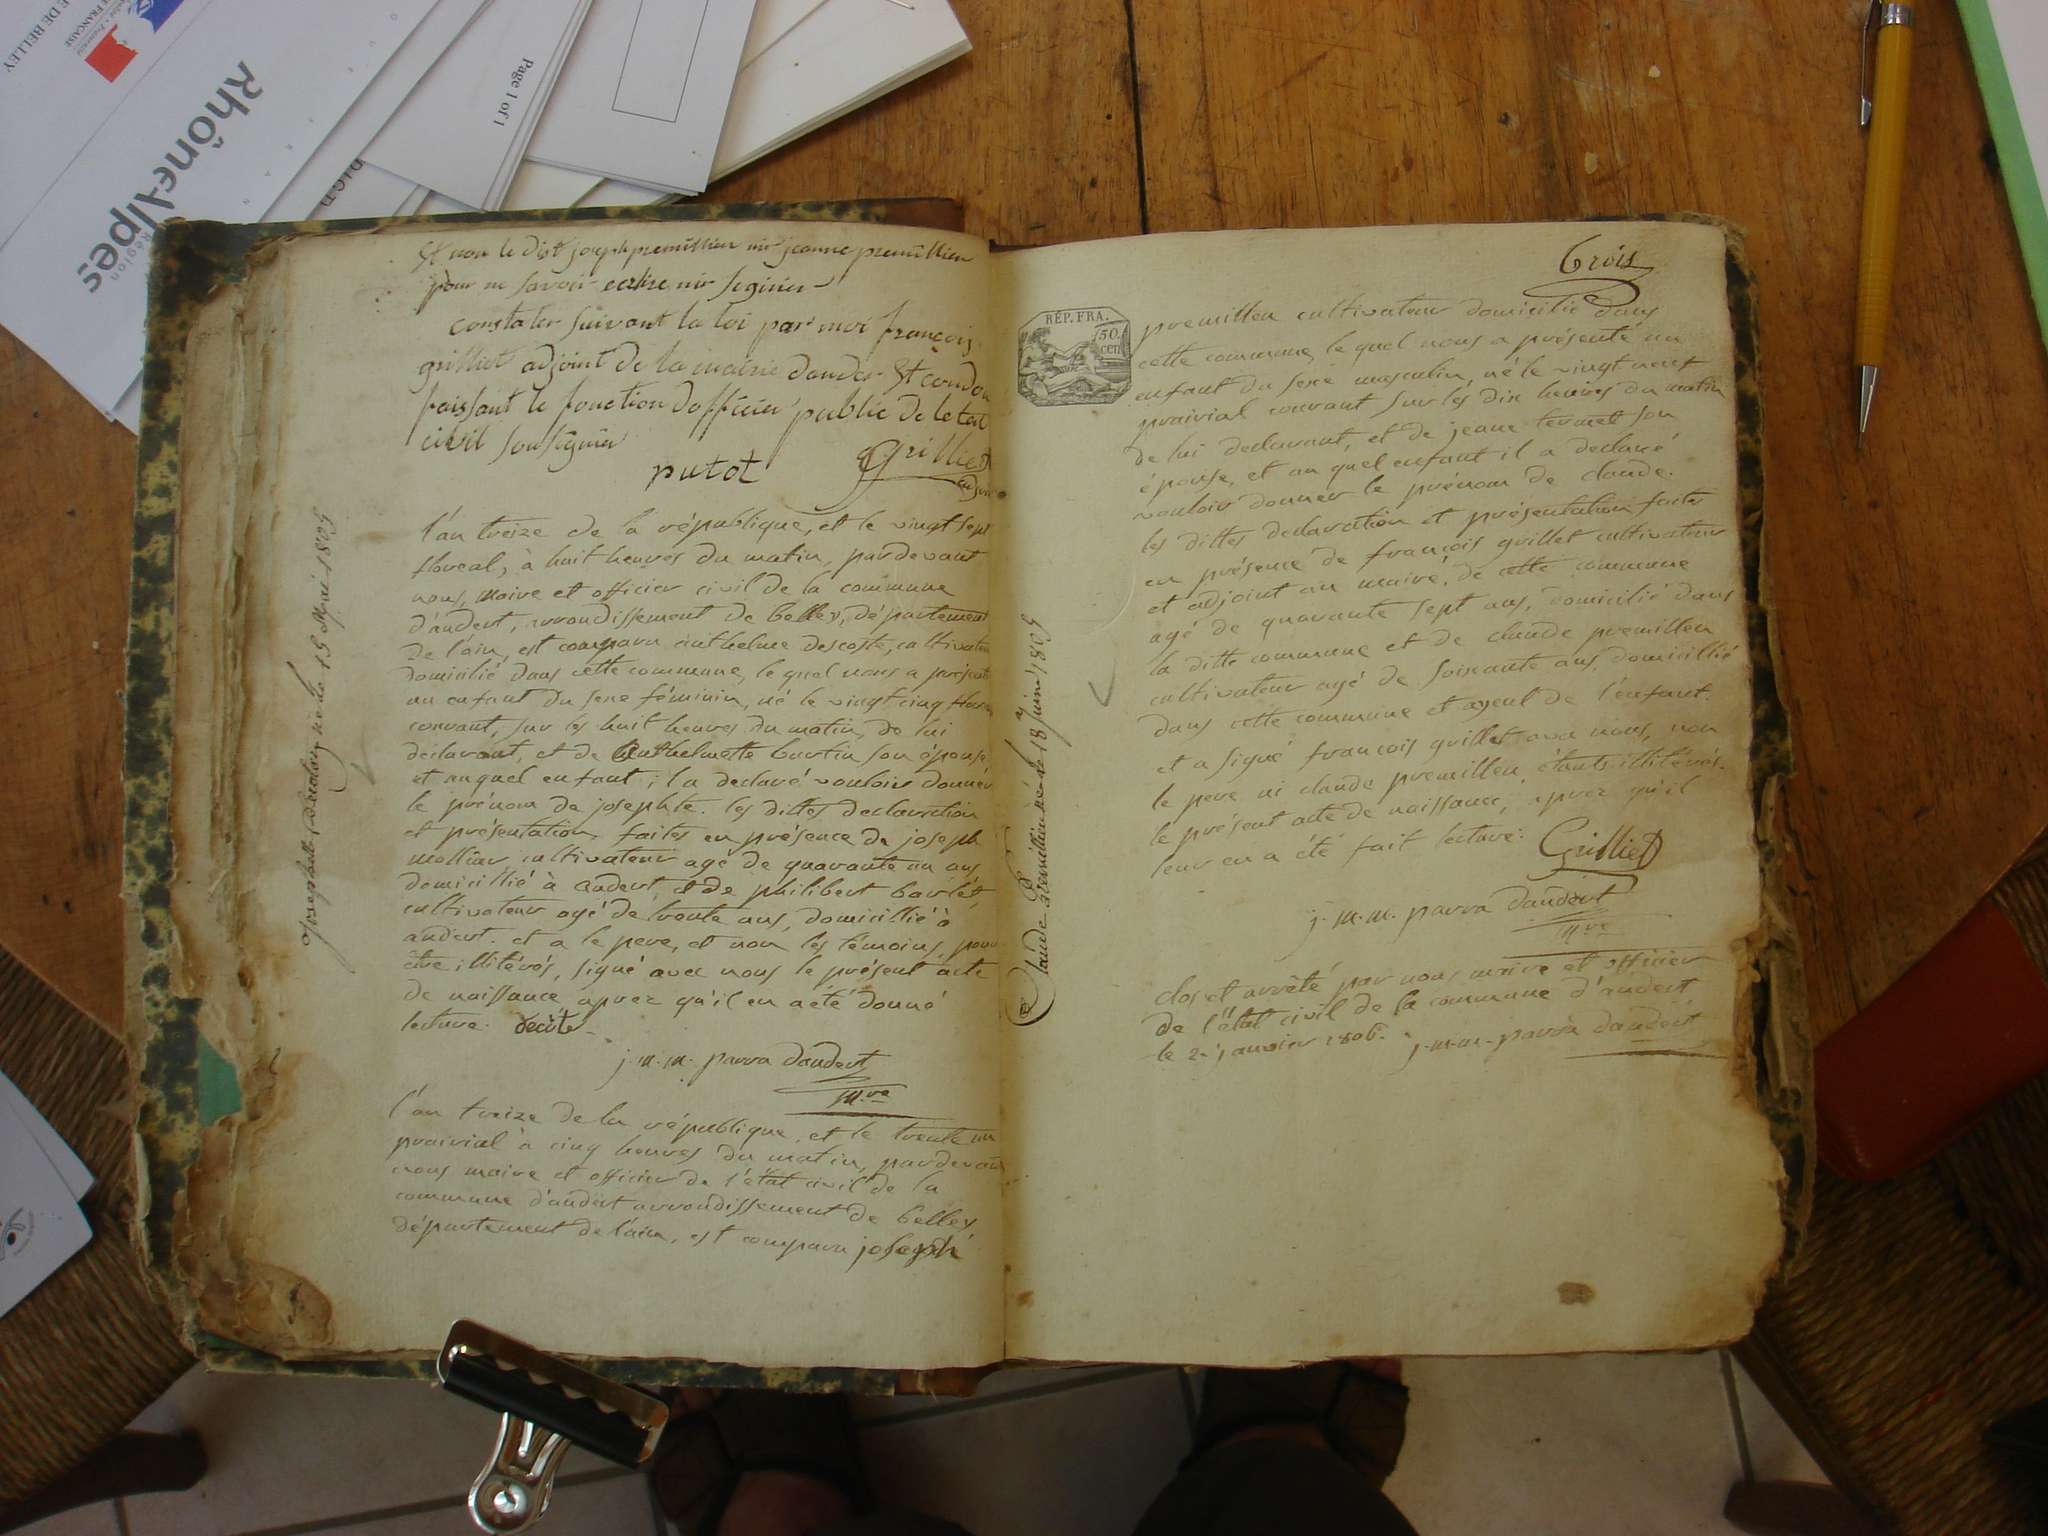 E DE BELLEY
FRANÇAISE
RhôneAlpes
Région
Page 1 of 1
Et non le dist joseph premillieu nis jeanne premillieu
pour ne savoir ecrire nis signier
constater suivant la loi par moi françois
grilliet adjoint de la mairie dandert Et condon
faissant le fonction dofficier public de letat
civil sousignier
putot Grilliet
adjoint
l'an treize de la république, et le vingt sept
floreal, à huit heures du matin, pardevant
nous, maire et officier civil de la commune
d'andert, arrondissement de belley, département
de l'ain, est comparu anthelme descoste, cultivateur
domicilié dans cette commune, le quel nous a présenté
un enfant du sexe féminin, né le vingt cinq floreal
courant, sur les huit heures du matin, de lui
déclarant, et de Anthelmette burtin son épouse
et auquel enfant, i la declaré vouloir donner
le prénom de josephte. les dittes declaration
et présentation, faites en présence de joseph
mollier cultivateur agé de quarante un ans
domicillié à andert et de philibert barlet
cultivateur agé de trente ans, domicillié à
andert. et a le pere, et non les témoins, pour
être illitérés, signé avec nous le présent acte
de naissance aprez qu'il en a été donné
lecture. decôte
j. m. m. parra dandert
m.re
l'an treize de la république, et le trente un
prairial à cinq heures du matin, pardevant
nous maire et officier de l'état civil de la
commune d'andert arrondissement de belley
département de l'ain, est comparu joseph
né le 15 Mai 1805
trois
RÉP. FRA.
50 cen
premilleu cultivateur domicilié dans
cette commune, le quel nous a présenté un
enfant du sexe masculin, né le vingt neuf
prairial courant sur les dix heures du matin
de lui declarant, et de jeane termet son
épouse, et au quel enfant il a declaré
vouloir donner le prénom de claude.
les dittes declaration et présentation faites
en présence de françois grillet cultivateur
et adjoint au maire, de cette commune
agé de quarante sept ans, domicilié dans
la ditte commune et de claude premilleu
cultivateur agé de soixante ans, domicillié
dans cette commune et ayeul de l'enfant.
et a signé françois grillet avec nous, non
le pere ni claude premilleu étants illitérés.
le présent acte de naissance, aprez qu'il
leur en a été fait lecture. Grilliet
j. m. m. parra dandert
m.re
clos et arrêté par nous maire et officier
de l'état civil de la commune d'andert
le 2 janvier 1806. j. m. m. parra dandert
Claude Premillieu né le 18 Juin 1805